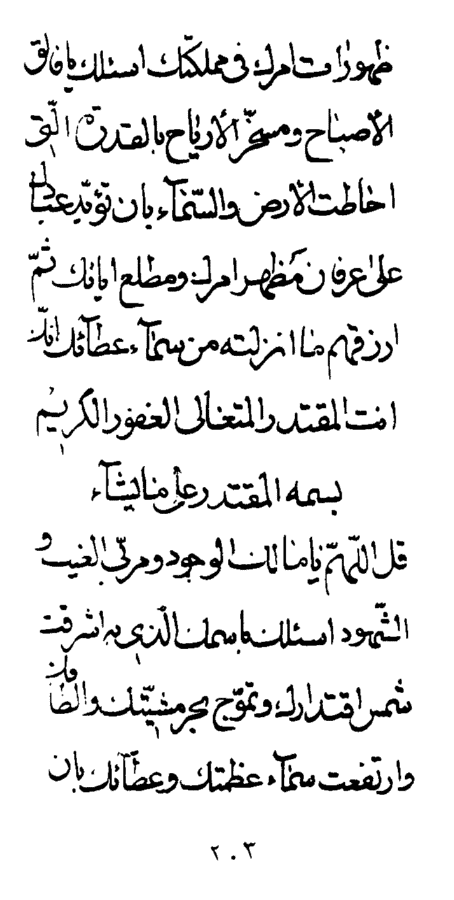 ظهورات امرك فى مملكتك اسئلك يا فالق
الأصباح ومسخّر الأرياح بالقدرة الّتى
احاطت الأرض والسّمآء بان تؤيّد عبادك
على عرفان مظهر امرك ومطلع اياتك ثمّ
ارزقهم ما انزلته من سمآء عطآئك انّك
انت المقتدر المتعالى الغفور الكريم
بسمه المقتدر على ما يشآء
قل اللّهمّ يا مالك الوجود ومربّى الغيب و
الشّهود اسئلك باسمك الّذى به اشرقت
شمس اقتدارك وتموّج بحر مشيّتك والطافك
وارتفعت سمآء عظمتك وعطآئك بان
٢٠٣